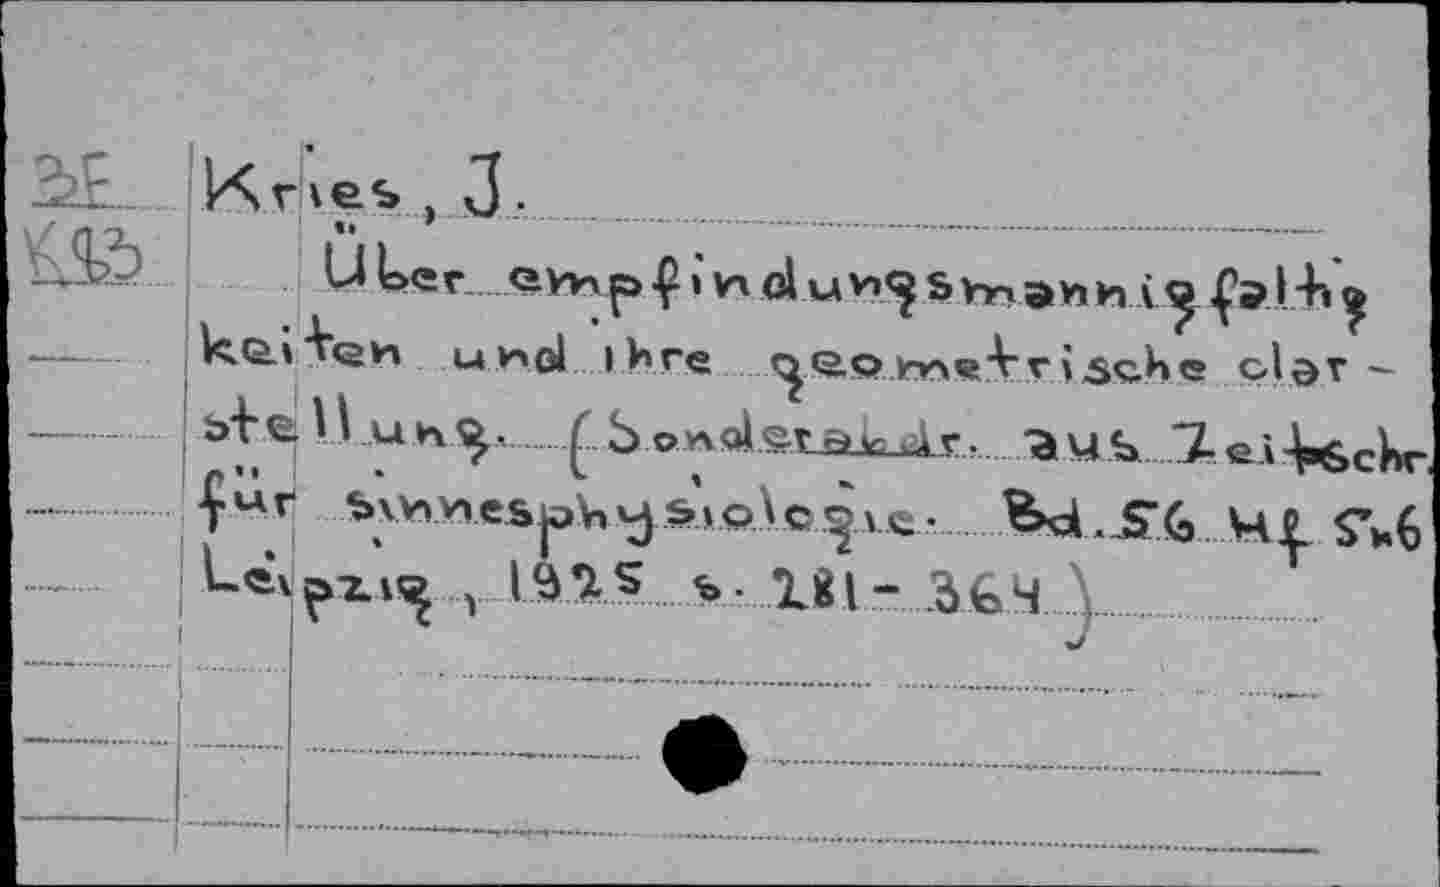 BF Kries, J.
K93
Über empfindungsmannigfaltig
keiten und ihre geometrische dar-
stellung. (Sonderabdr. aus Zeitschr.
für sinnesphysiologie. Bd. 56 Hf. 5u6
Leipzig, 1925 s. 281-364)